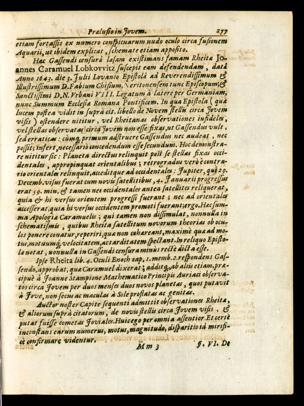 Prælusio in Jovem. 277
etiam fortassis ex numero conspicuarum nudo oculo circa fusionem
Aquarii, ut ibidem explicat, schemate etiam apposito.
Hac Gassendi censurâ læsam existimans famam Rheita Jo-
annes Caramuel Lobkovvitz suscepit eam defendendam, dato
Anno 1643. die 3. Julii Lovanio Epistolâ ad Reverendissimum &
Illustrissimum D. Fabium Chisium, Neritonensem tunc Episcopum, &
Sanctissimi D.N. Vrbani VIII. Legatum à latere per Germaniam,
nunc Summum Ecclesiæ Romanæ Pontificem. In qua Epistola (quæ
lucem postea vidit in suprà cit. libello de Novem stellis circa Jovem
visis) ostendere nititur, vel Rheitanas observationes infideles,
vel stellas observatas circà Jovem non esse fixas, ut Gassendus vult,
sed erraticas: cùmq; primum adstruere Gassendus nec audeat, nec
possit; infert, necessariò concedendum esse secundum. Hoc demonstra-
re nititur sic: Planeta directus relinquit post se stellas fixas occi-
dentales, appropinquat orientalibus; retrogradus verò è contra-
rio orientales relinquit, acceditque ad occidentales: Jupiter, qui 29.
Decemb. visus fuerat cum novis satellitibus, 4. Januarii progressus
erat 39. min. & tamen nec occidentales antea satellites reliquerat,
quia & hi versùs orientem progressi fuerant; nec ad orientales
accesserat, quia hi versùs occidentem promoti fuerant ergo. Hæc sum-
ma Apologiæ Caramuelis; qui tamen non dissimulat, nonnulla in
schematismis, quibus Rheita satellitum novorum theorias ob ocu-
los ponere conatur, reperiri, quæ non cohæreant, maximè quæ ad mo-
tus, motuumq; velocitatem, ac tarditatem spectant. In reliquo Episto-
læ notat, nonnulla in Gassendi censura minùs rectè dicta esse.
Ipse Rheita lib. 4. Oculi Enoch cap. 1. memb. 2. respondens Gas-
sendo, approbat, quæ Caramuel dixerat; additq; ab aliis etiam, præ-
cipuè à Joanne Stampione Mathematico Principis Auriaci observa-
tos circa Jovem per duos menses duos novos planetas, quos putavit
à Jove, non secus ac maculas à Sole prostatas ac genitas.
Auctor noster Capite sequenti admittit observationes Rheitæ,
& aliorum suprà citatorum, de novis stellis circa Jovem visis, &
putat fuisse cometas Joviales. Huic ego per omnia assentior. Et certè
inconstans earum numerus, motus, magnitudo, disparitio id mirifi-
cè confirmare videntur.
M m 3 §. VI. De